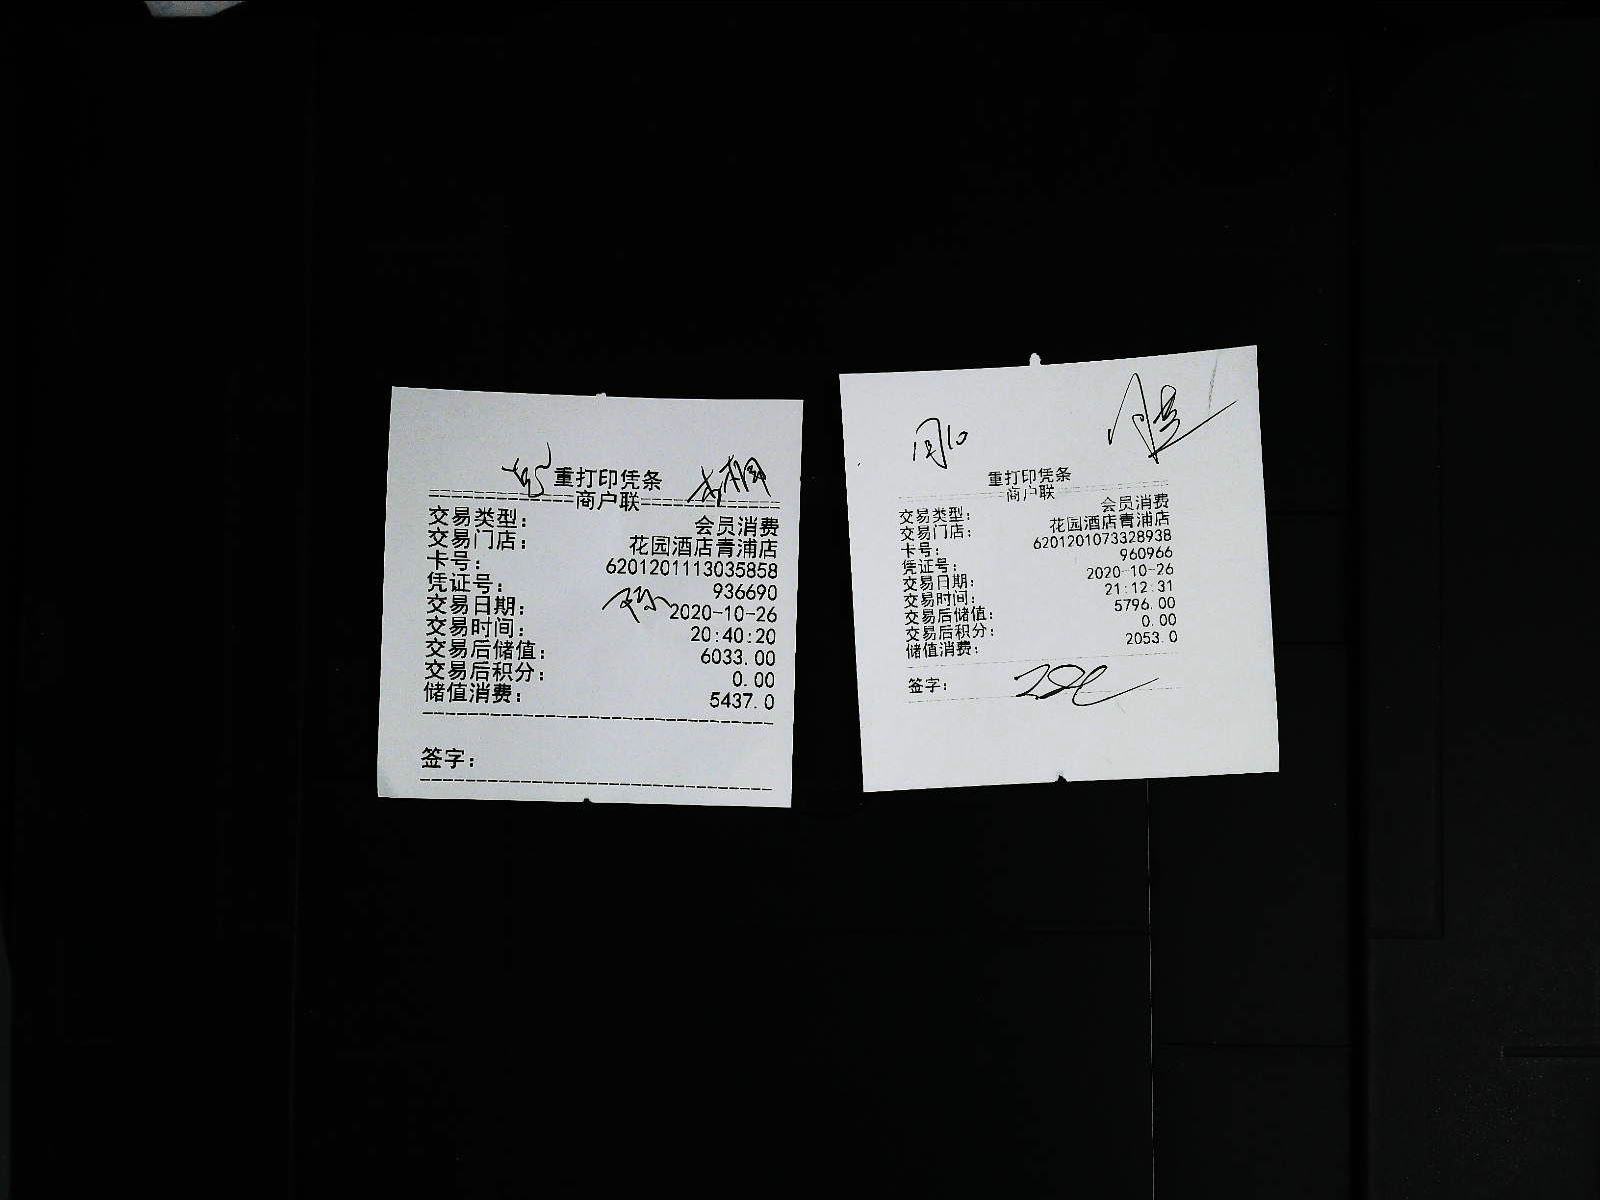 重打印凭条
商户联
交易类型： 会员消费
交易门店： 花园酒店青浦店
卡号： 6201201113035858
凭证号： 936690
交易日期： 2020-10-26
交易时间： 20:40:20
交易后储值： 6033.00
交易后积分： 0.00
储值消费： 5437.0
签字：
重打印凭条
商户联
交易类型： 会员消费
交易门店： 花园酒店青浦店
卡号： 6201201073328938
凭证号： 960966
交易日期： 2020-10-26
交易时间： 21:12:31
交易后储值： 5796.00
交易后积分： 0.00
储值消费： 2053.0
签字：